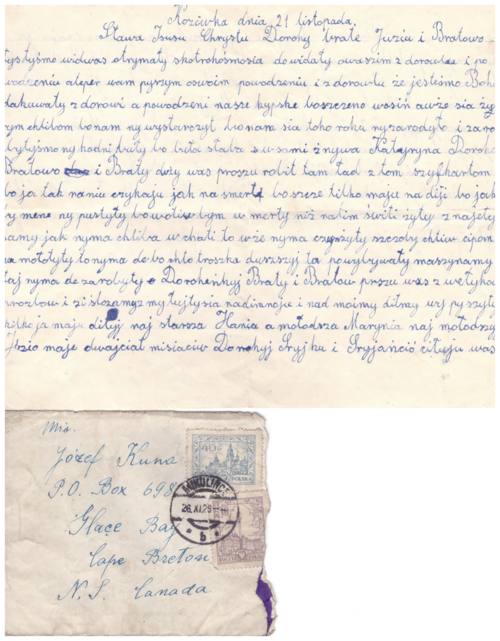 Kozówka dnia 21 listopada,
Sława Isusu Chrystu Dorohy brate Juziu i Bratowo
łystyśmo widwas otrymały skotrohośmosia dowidały owaszim zdorowlu i po
wodzeniu ateper wam pyszym oswoim powodzeniu i zdorowlu że jesteśmo Bohu
dakuwaty zdorowi a powodzeni nasze kypśke boszczeno wosiń auże sia ży
rym chlibom bonam ny wystarczyt bonam sia toho roku nyzarodyło i zaro
bytyśmo ny hodni byly bo buła słaba zo wsami żnywa Katajryna Doroho
Bratowo i Braty duży was proszu robit tam ład z tom szyfkartom
bo ja tak na niu czykaju jak na smert boszcze tilko maju na diji bo jak
by mene ny pustyły bo woliw bym w merty niż na tim świti żyty z najety
namy jak nyma chliba w chati to wże nyma
ua mołotyty to nyma de bo chto troszka duszczyj ta powybywaty maszynamy
taj nyma de zarobyty o Dorohenkyj Braty i Bratow proszu was z wełykoho
i zi slozamy zmyłujtysia nadimnoju i nad moimy ditmy
kilko ja maju dityj naj starsza Hania a mołodsza Marynia naj mołodszy
Józio maje dwajciat misiaciw Dorohyj Sryjku i Sryjanció ciłuju was
Mis.
Józef Kuna
P.O. Box 698
Glace Bay
Cape Breton
N.S. Canada
40 GR
POLSKA
MIKULIŃCE
26.XI.29
b